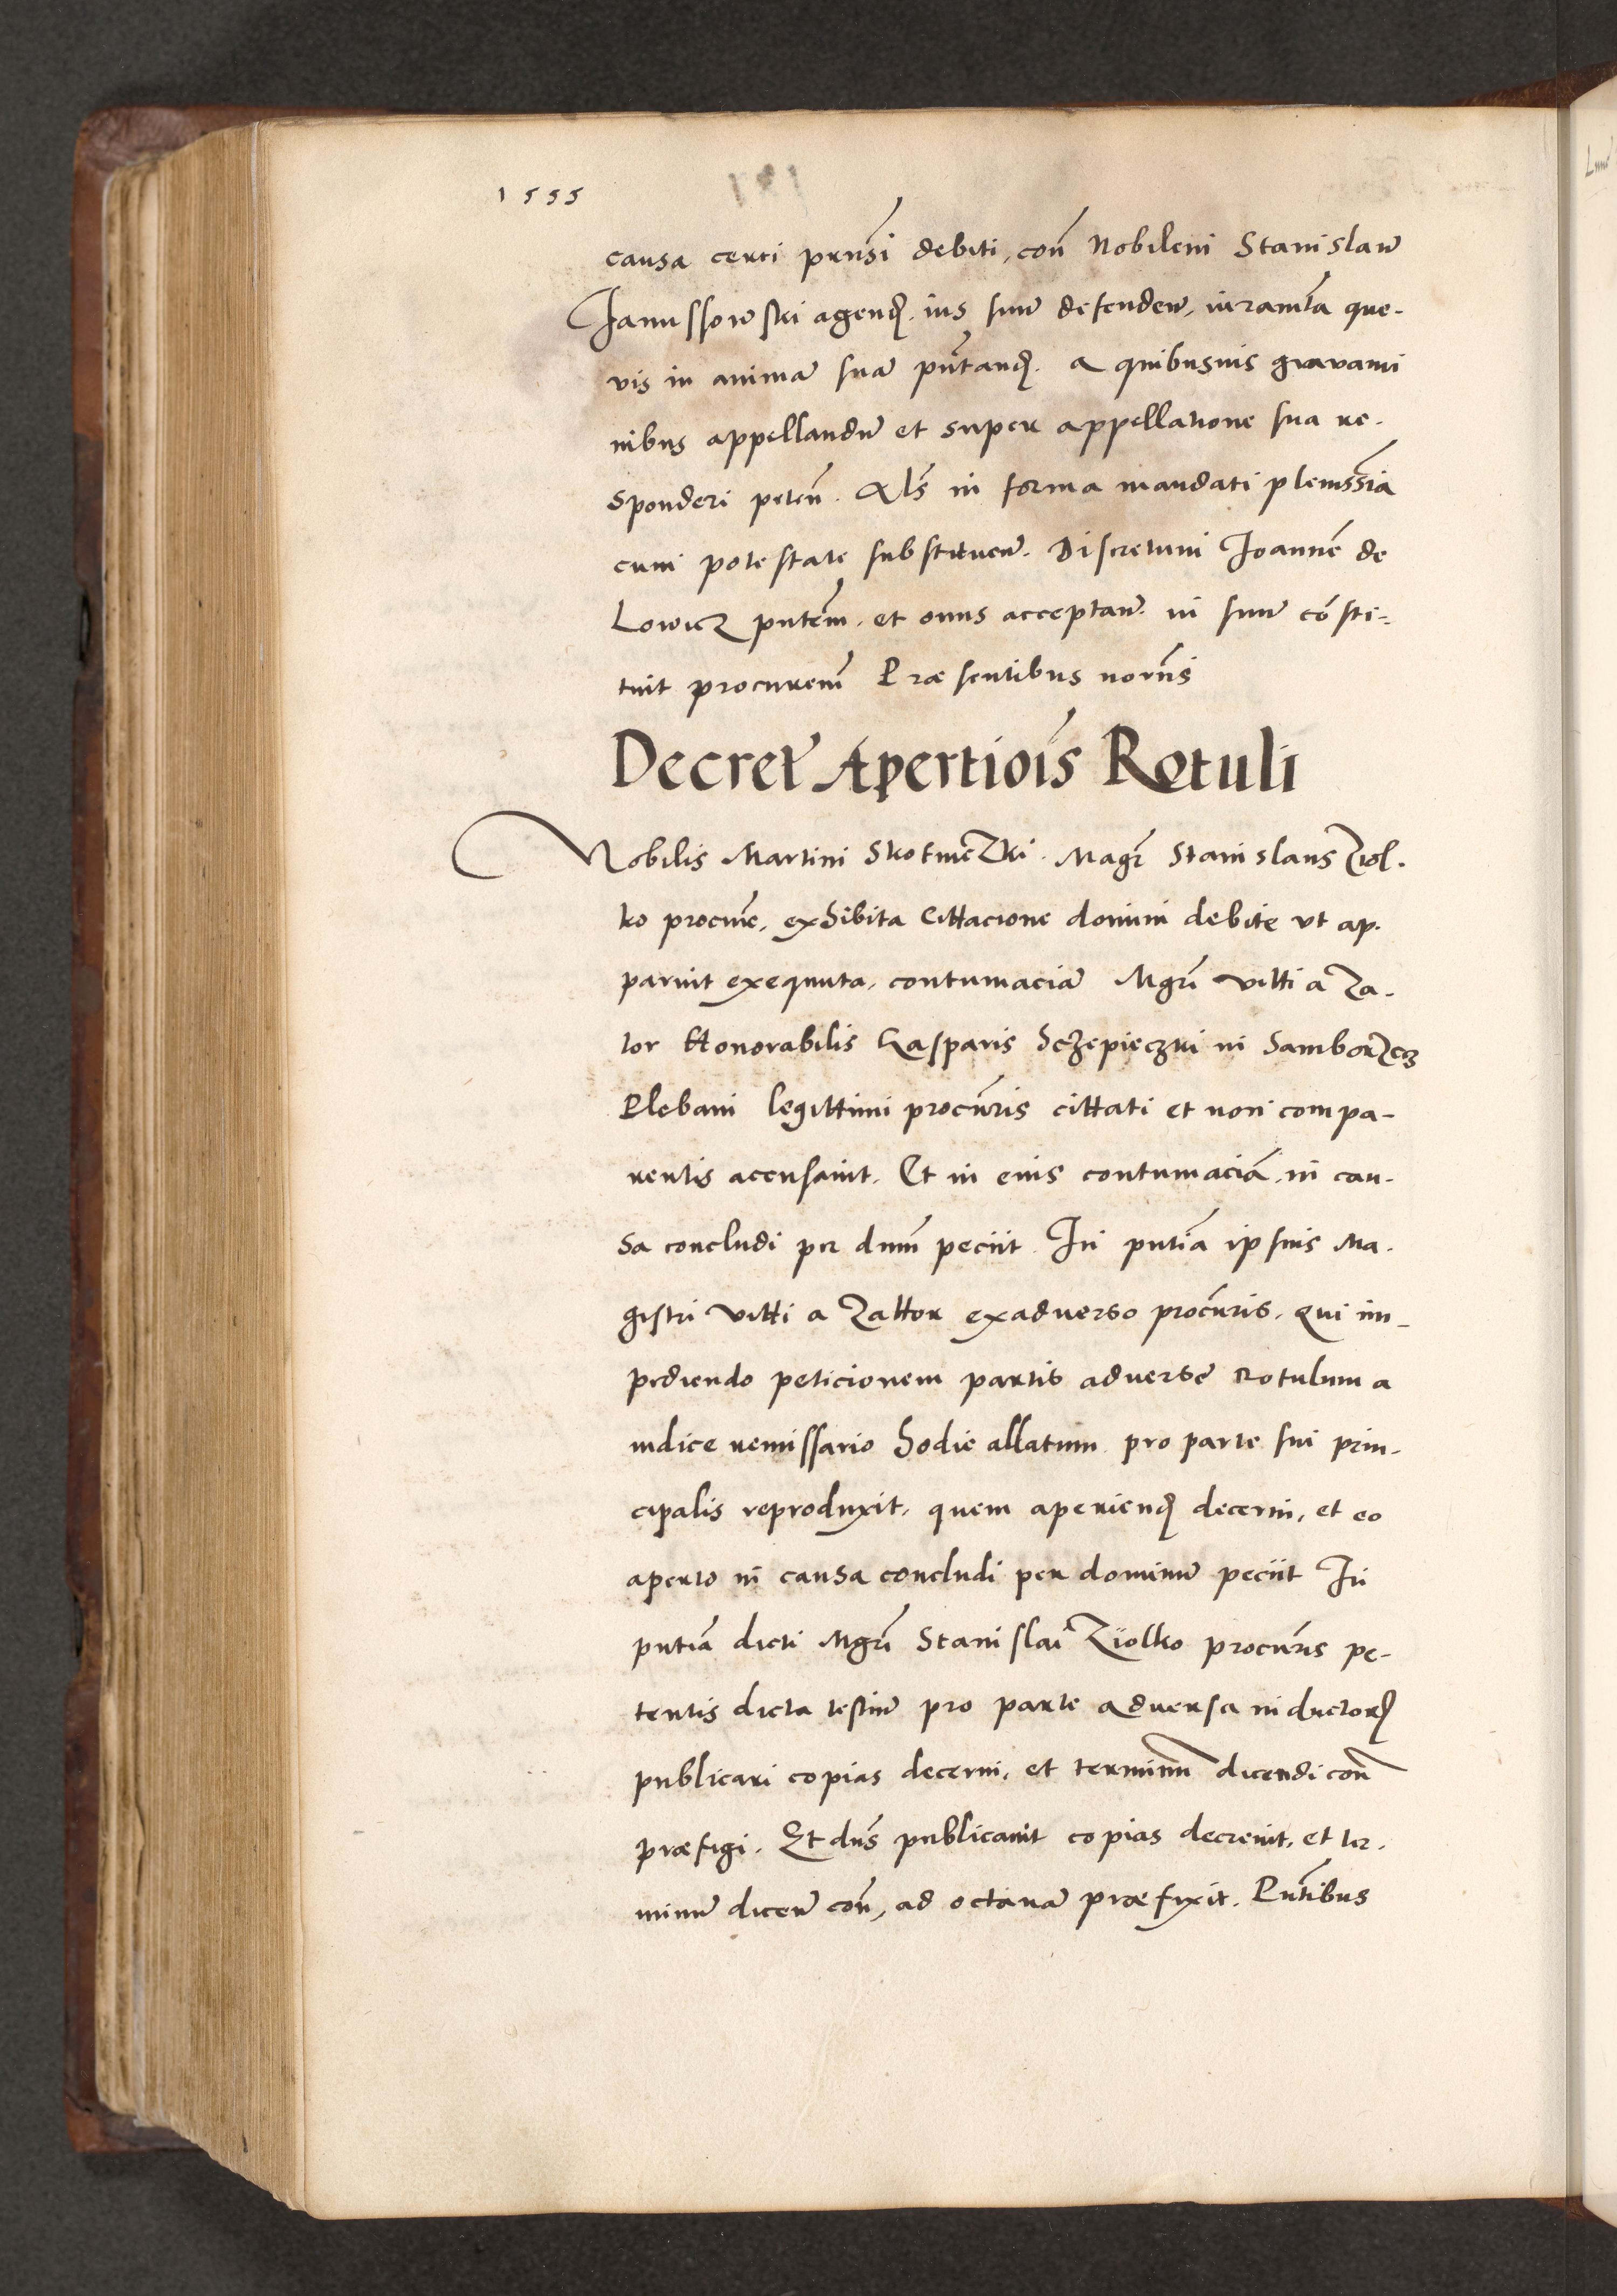 1555
causa certi prnsi debiti, con Nobilem Stanislaw
Janussowski agend. ius suu defendeu, iuramta que-
vis in anima sua pntand. a quibusuis gravami
nibus appellandu et super appellatione sua re-
sponderi peten. Als in forma mandati plenissia
cum potestate substituen. Discretum Joanne de
Lowicz pntem. et onus acceptan. in suu costi-
tuit procurem Præsentibus norns
Decret Apertiois Rotuli
Nobilis Martini Skotniczki. Magr Stanislaus Ziol-
ko procure, exhibita Cittacione domini debite ut ap-
paruit exequuta, contumacia Mgri Vitti a Za-
tor Honorabilis Gasparis Sczepieczki in Samborzecz
Plebani legittimi procuris cittati et non compa-
rentis accusauit. Et in eius contumacia in cau-
sa concludi per dnm peciit. In pntia ipsius Ma-
gistri Vitti a Zattor exadverso procuris. Qui im-
pediendo peticionem partis adverse Rotulum a
iudice remissario hodie allatum pro parte sui prin-
cipalis reproduxit, quem aperiend decerni, et eo
aperto in causa concludi per dominu peciit In
pntia dicti Mgri Stanislai Ziolko procuris pe-
tentis dicta testiu pro parte adversa inductor
publicari copias decerni, et terminum dicendi con
præfigi. Et dns publicauit copias decreuit, et ter-
minu dicen con, ad octaua præfixit. Pntibus